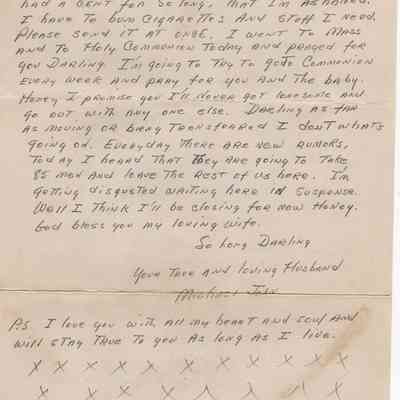 had a cent for so long, that I'm ashamed.
I have to bum cigarettes and stuff I need.
Please send it at once. I went to Mass
and to Holy Communion today and prayed for
you Darling. I'm going to try to go to Communion
every week and pray for you and the baby.
Honey I promise you I'll never get lonesome and
go out with any one else. Darling as far
as moving or bang transfeared I dont whats
going on. Everyday there are new rumors,
today I heard that they are going to take
85 men and leave the rest of us here. I'm
getting disgusted waiting here in suspense.
Well I think I'll be closing for now Honey.
God bless you my loving wife.
So Long Darling
Your True and Loving Husband
Michael
P.S. I love you with all my heart and soul and
will stay true to you as long as I live.
x x x x x x x x x x x x
x x x x x x x x